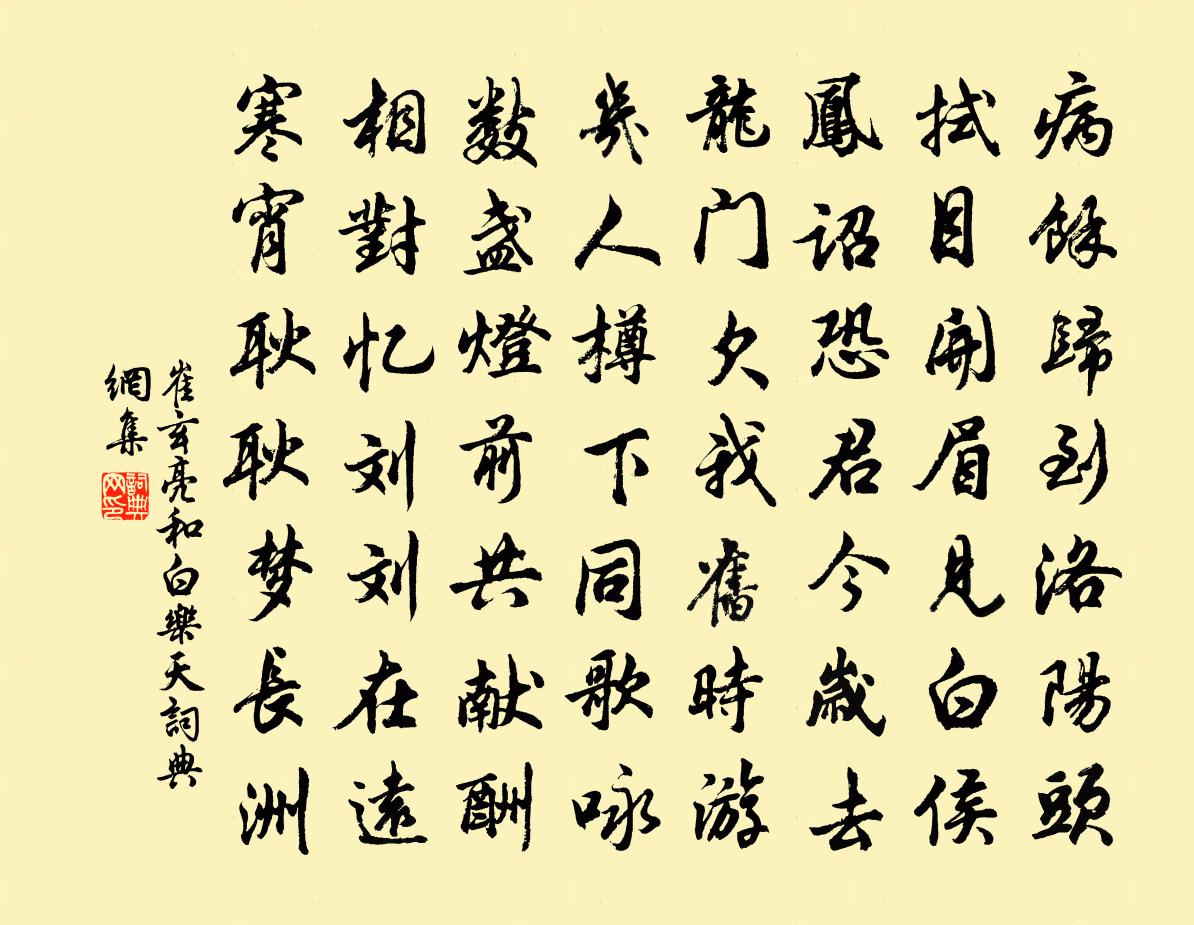 病餘歸到洛陽頭
拭目開眉見白侯
鳳詔恐君今歲去
龍门欠我舊時游
幾人樽下同歌咏
數盏燈前共献酬
相對忆刘刘在遠
寒宵耿耿梦長洲
崔玄亮和白樂天詞典
網集
詞典
网印